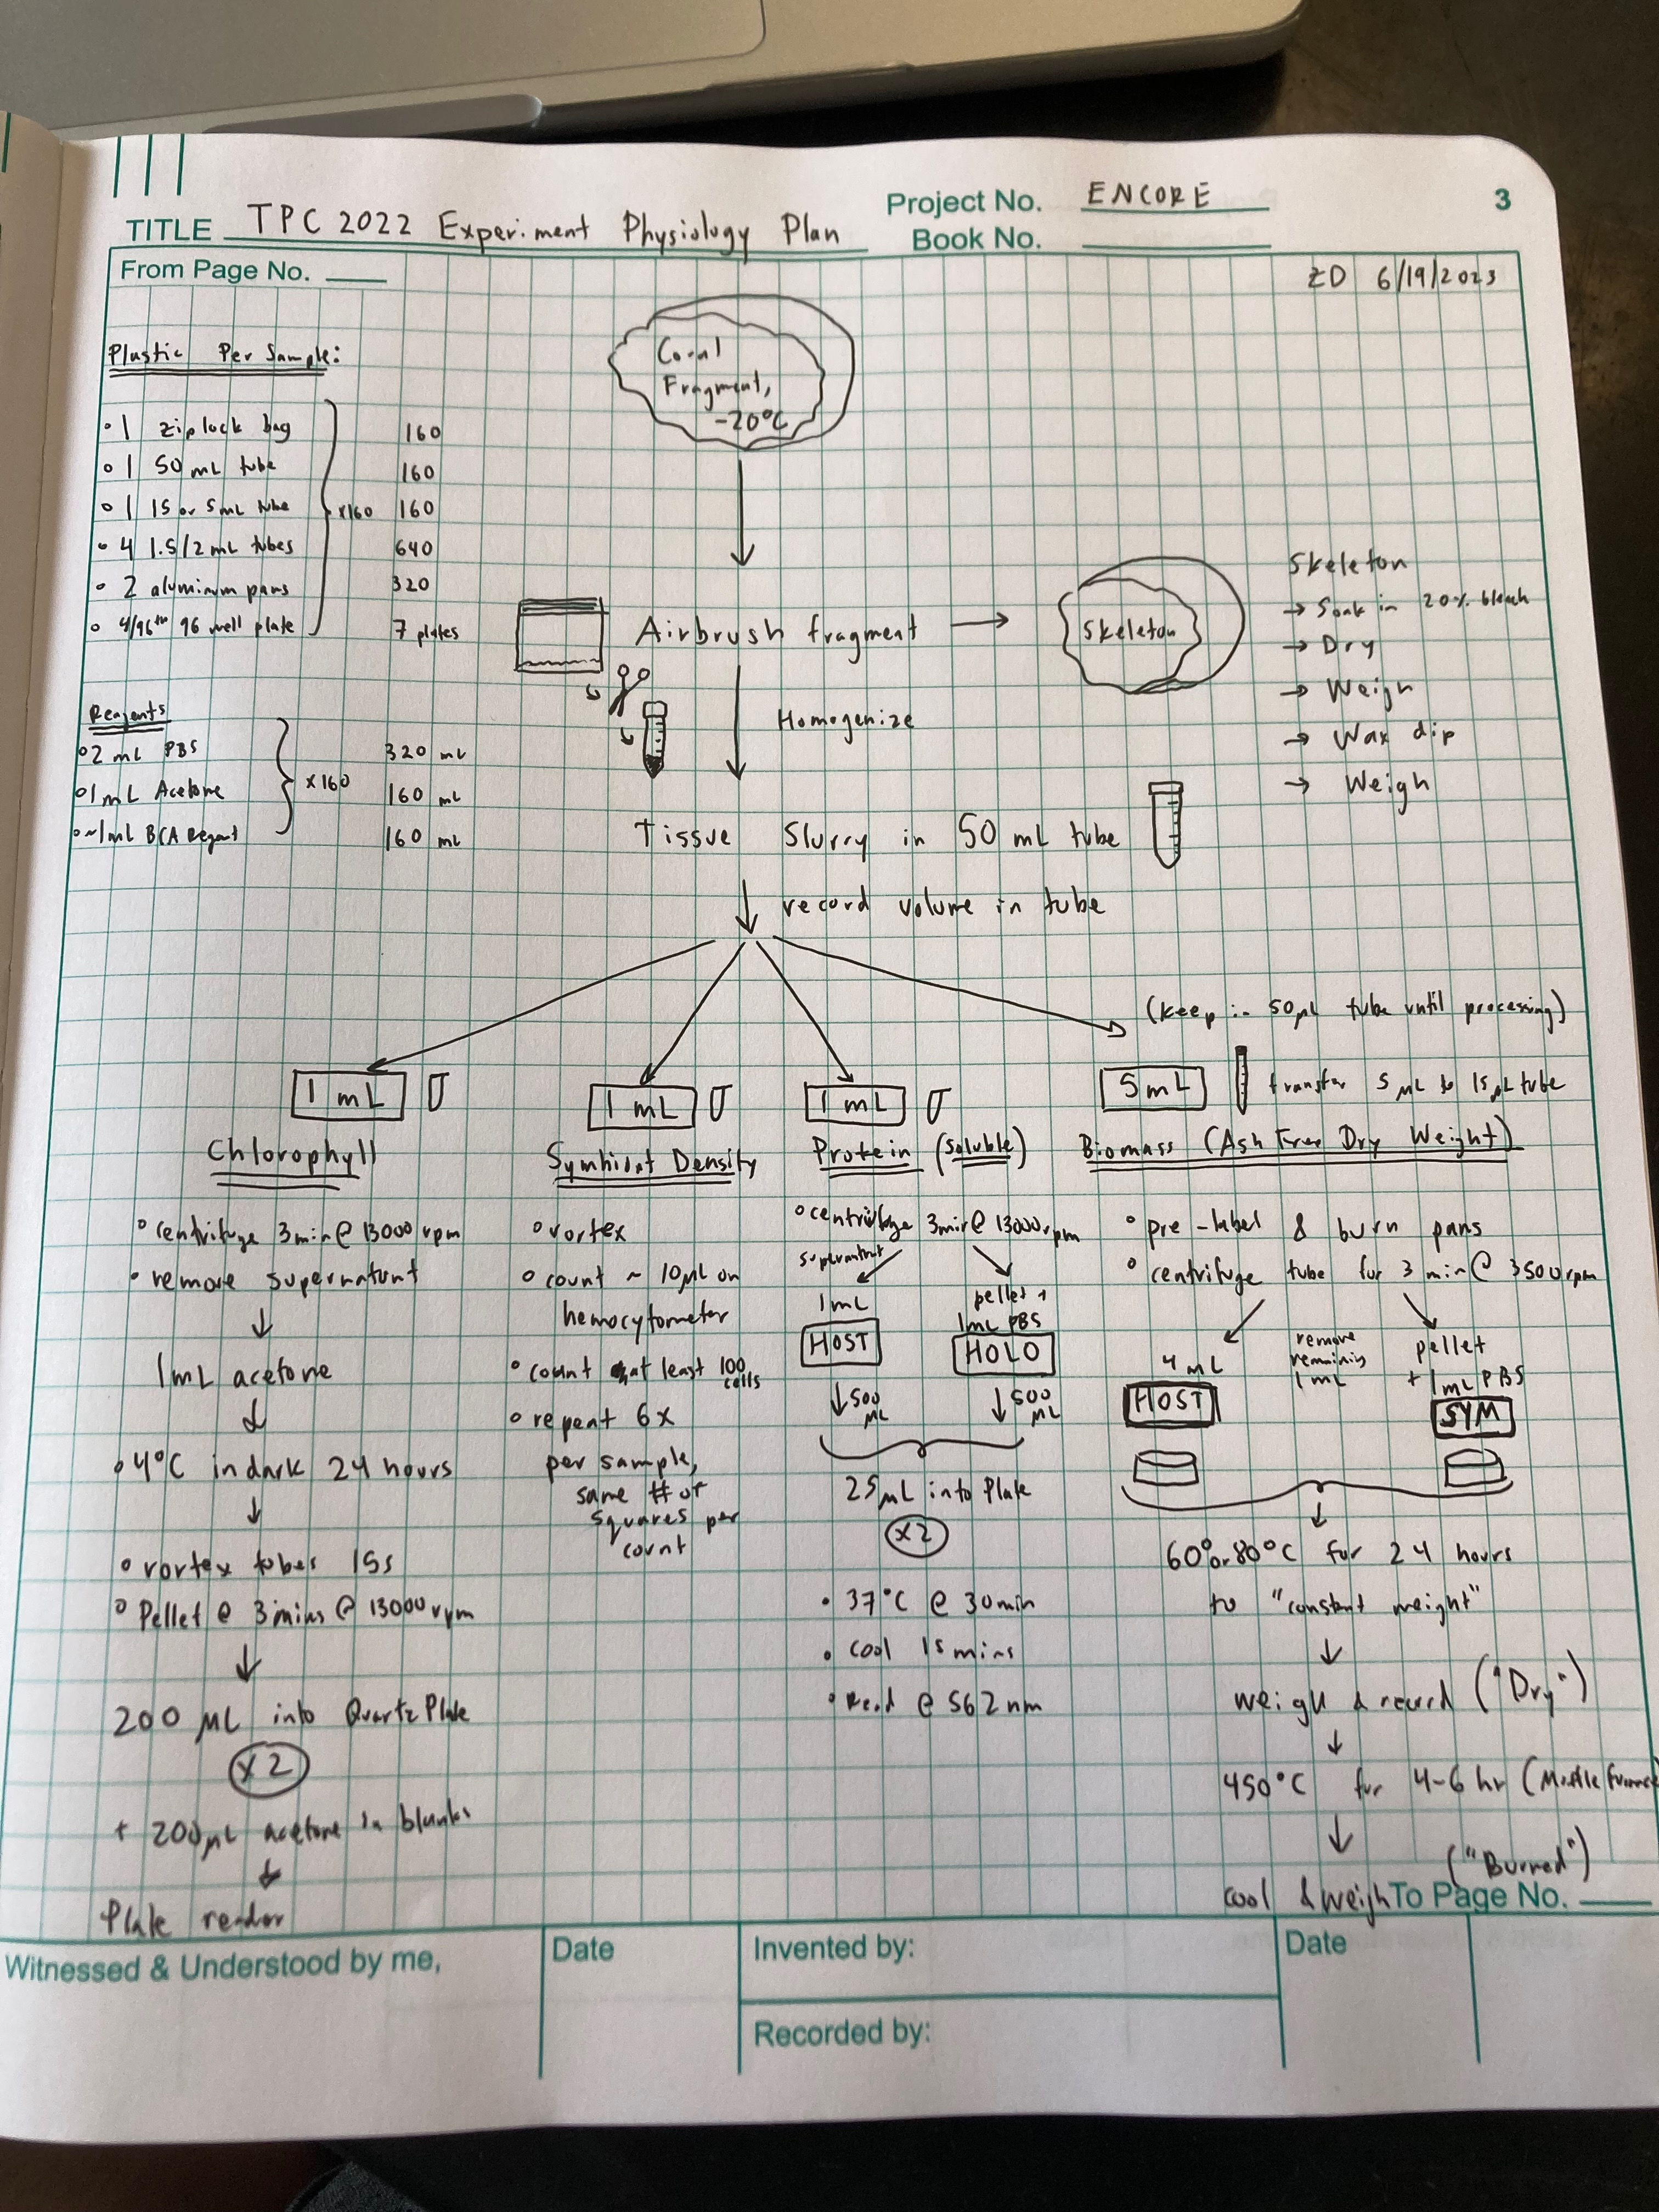 Project No. ENCORE
3
TITLE TPC 2022 Experiment Physiology Plan
Book No.
From Page No.
ZD 6/19/2023
Plastic Per Sample:
1 ziplock bag 160
1 50 mL tube 160
1 15 or 5 mL tube x160 160
4 1.5/2 mL tubes 640
2 aluminum pans 320
4/96th 96 well plate 7 plates
Reagents
2 mL PBS 320 mL
1 mL Acetone x160 160 mL
~1mL BCA Regent 160 mL
Coral
Fragment,
-20°C
Airbrush fragment → Skeleton
Skeleton
→ Soak in 20% bleach
→ Dry
→ Weigh
→ Wax dip
→ Weigh
Homogenize
Tissue Slurry in 50 mL tube
record volume in tube
1 mL
Chlorophyll
centrifuge 3min @ 13000 rpm
remove supernatant
↓
1mL acetone
↓
4°C in dark 24 hours
↓
vortex tubes 15s
Pellet @ 3mins @ 13000 rpm
↓
200 μL into Quartz Plate
x2
+ 200μL acetone in blanks
↓
Plate reader
1 mL
Symbiont Density
vortex
count ~ 10μL on
hemocytometer
count at least 100
cells
repeat 6x
per sample,
same # of
squares per
count
1 mL
Protein (soluble)
centrifuge 3min @ 13000rpm
supernatant
1mL
HOST
↓500
μL
pellet +
1mL PBS
HOLO
↓500
μL
25μL into Plate
x2
37°C @ 30min
Cool 15 mins
Read @ 562nm
(keep in 50μL tube until processing)
5mL
transfer 5 mL to 15μL tube
Biomass (Ash Free Dry Weight)
pre-label & burn pans
centrifuge tube for 3 min @ 3500rpm
4 mL
HOST
remove
remaining
1mL
pellet
+ 1mL PBS
SYM
60° or 80°C for 24 hours
to "constant weight"
↓
weigh & record ("Dry")
↓
450°C for 4-6 hr (Muffle furnace
↓
("Burned")
cool & weigh
To Page No.
Witnessed & Understood by me,
Date
Invented by:
Date
Recorded by: